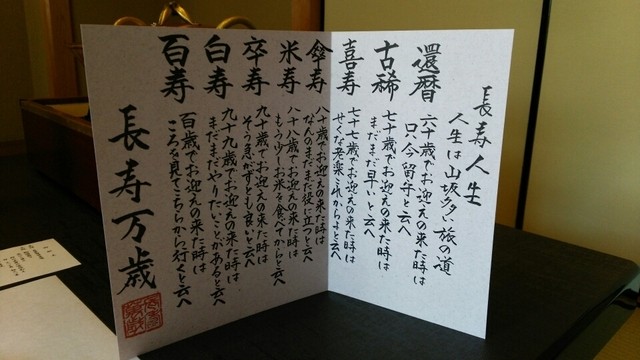 長寿人生
人生は山坂多い旅の道
還暦
六十歳でお迎えの来た時は
只今留守と云へ
古稀
七十歳でお迎えの来た時は
まだまだ早いと云へ
喜寿
七十七歳でお迎えの来た時は
せくな老楽これからよと云へ
傘寿
八十歳でお迎えの来た時は
なんのまだまだ役に立つと云へ
米寿
八十八歳でお迎えの来た時は
もう少しお米を食べてからと云へ
卒寿
九十歳でお迎えの来た時は
そう急がずとも良いと云へ
白寿
九十九歳でお迎えの来た時は
まだまだやりたいことがあると云へ
百寿
百歳でお迎えの来た時は
ころを見てこちらから行くと云へ
長寿万歳